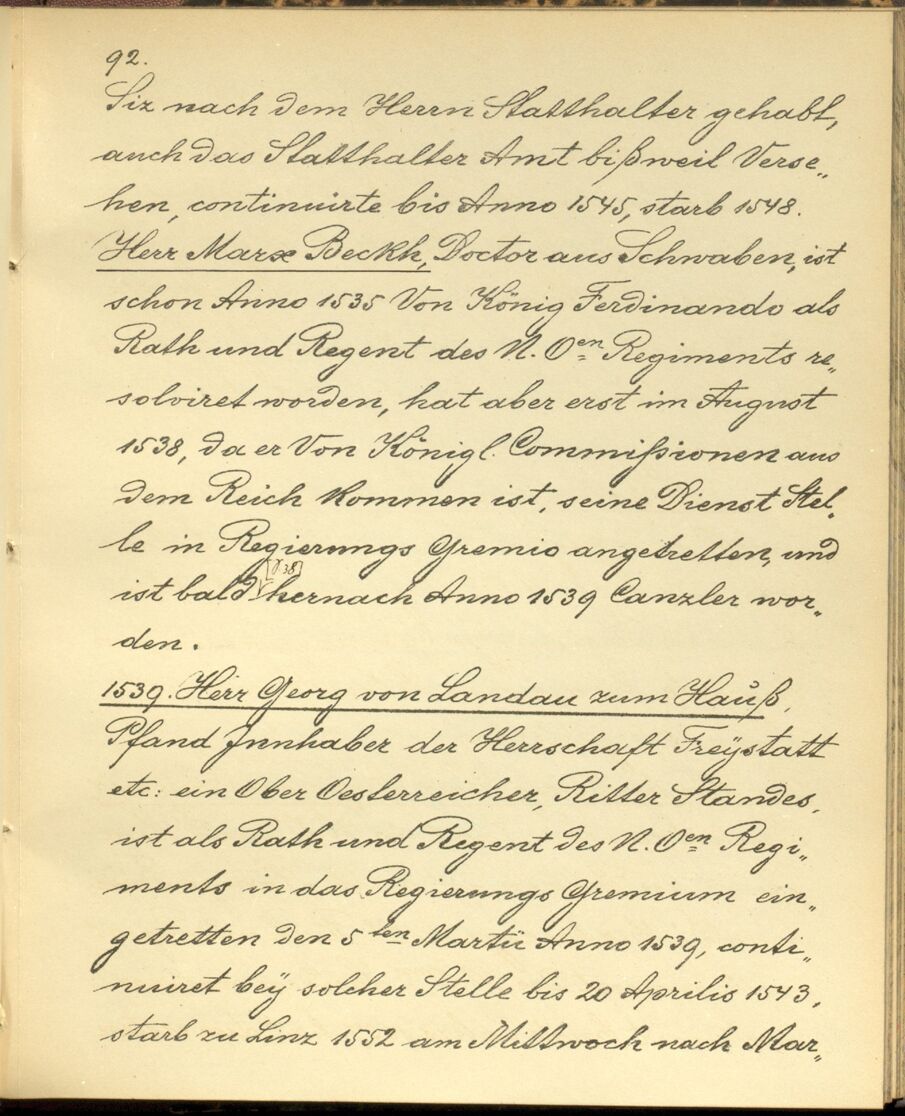 92.
Siz nach dem Herrn Statthalter gehabt,
auch das Statthalter Amt bißweil Verse„
hen, continuirte bis Anno 1545, starb 1548.
Herr Marx Beckh, Doctor aus Schwaben, ist
schon Anno 1535 Von König Ferdinando als
Rath und Regent des N. Oen Regiments re„
solviret worden, hat aber erst im August
1538, da er Von Königl. Commißionen aus
dem Reich kommen ist, seine Dienst Stel„
le in Regierungs Gremio angetretten, und
ist bald hernach Anno 1539 Canzler wor„
den.
1539. Herr Georg von Landau zum Hauß,
Pfand Innhaber der Herrschaft Freÿstatt
etc: ein Ober Oesterreicher, Ritter Standes,
ist als Rath und Regent des N. Oen Regi„
ments in das Regierungs Gremium ein„
getretten den 5ten Martii Anno 1539, conti„
nuiret beÿ solcher Stelle bis 20 Aprilis 1543,
starb zu Linz 1552 am Mittwoch nach Mar„